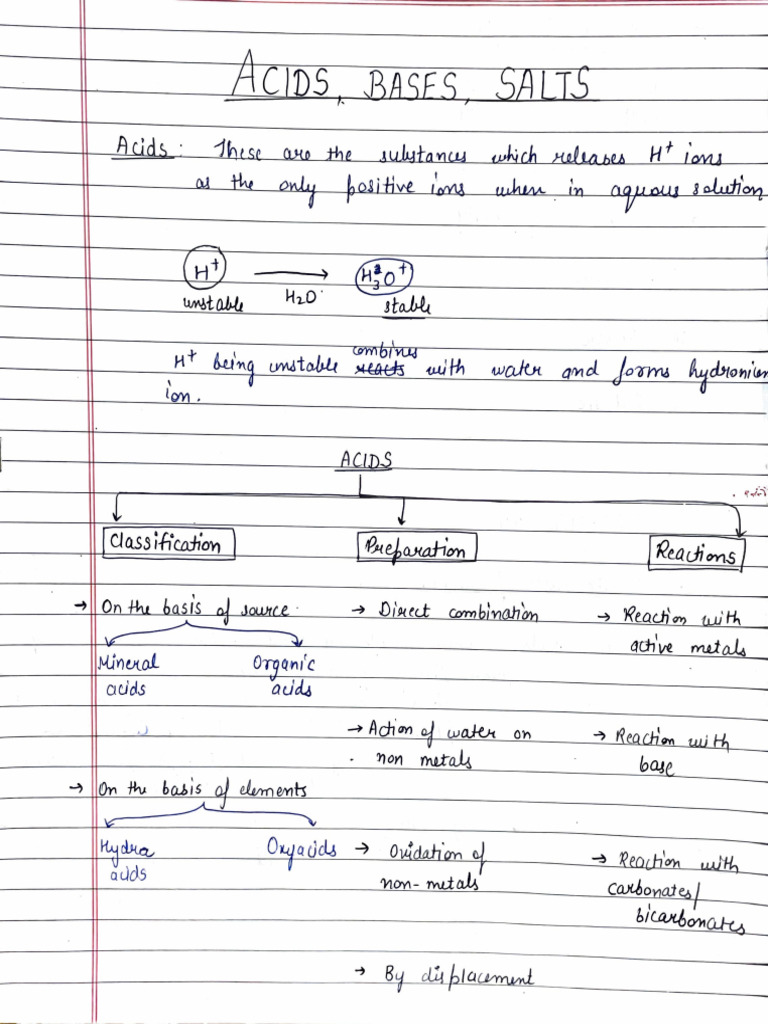 ACIDS, BASES, SALTS
Acids : These are the substances which releases H⁺ ions
as the only positive ions when in aquous solution
H⁺ → H₃O⁺
unstable H₂O stable
combines
H⁺ being unstable reacts with water and forms hydronium
ion.
ACIDS
Classification Preparation Reactions
→ On the basis of source → Direct combination → Reaction with
active metals
Mineral Organic
acids acids
→ Action of water on → Reaction with
non metals base
→ On the basis of elements
Hydra Oxyacids → Oxidation of → Reaction with
acids non-metals carbonates/
bicarbonates
→ By displacement